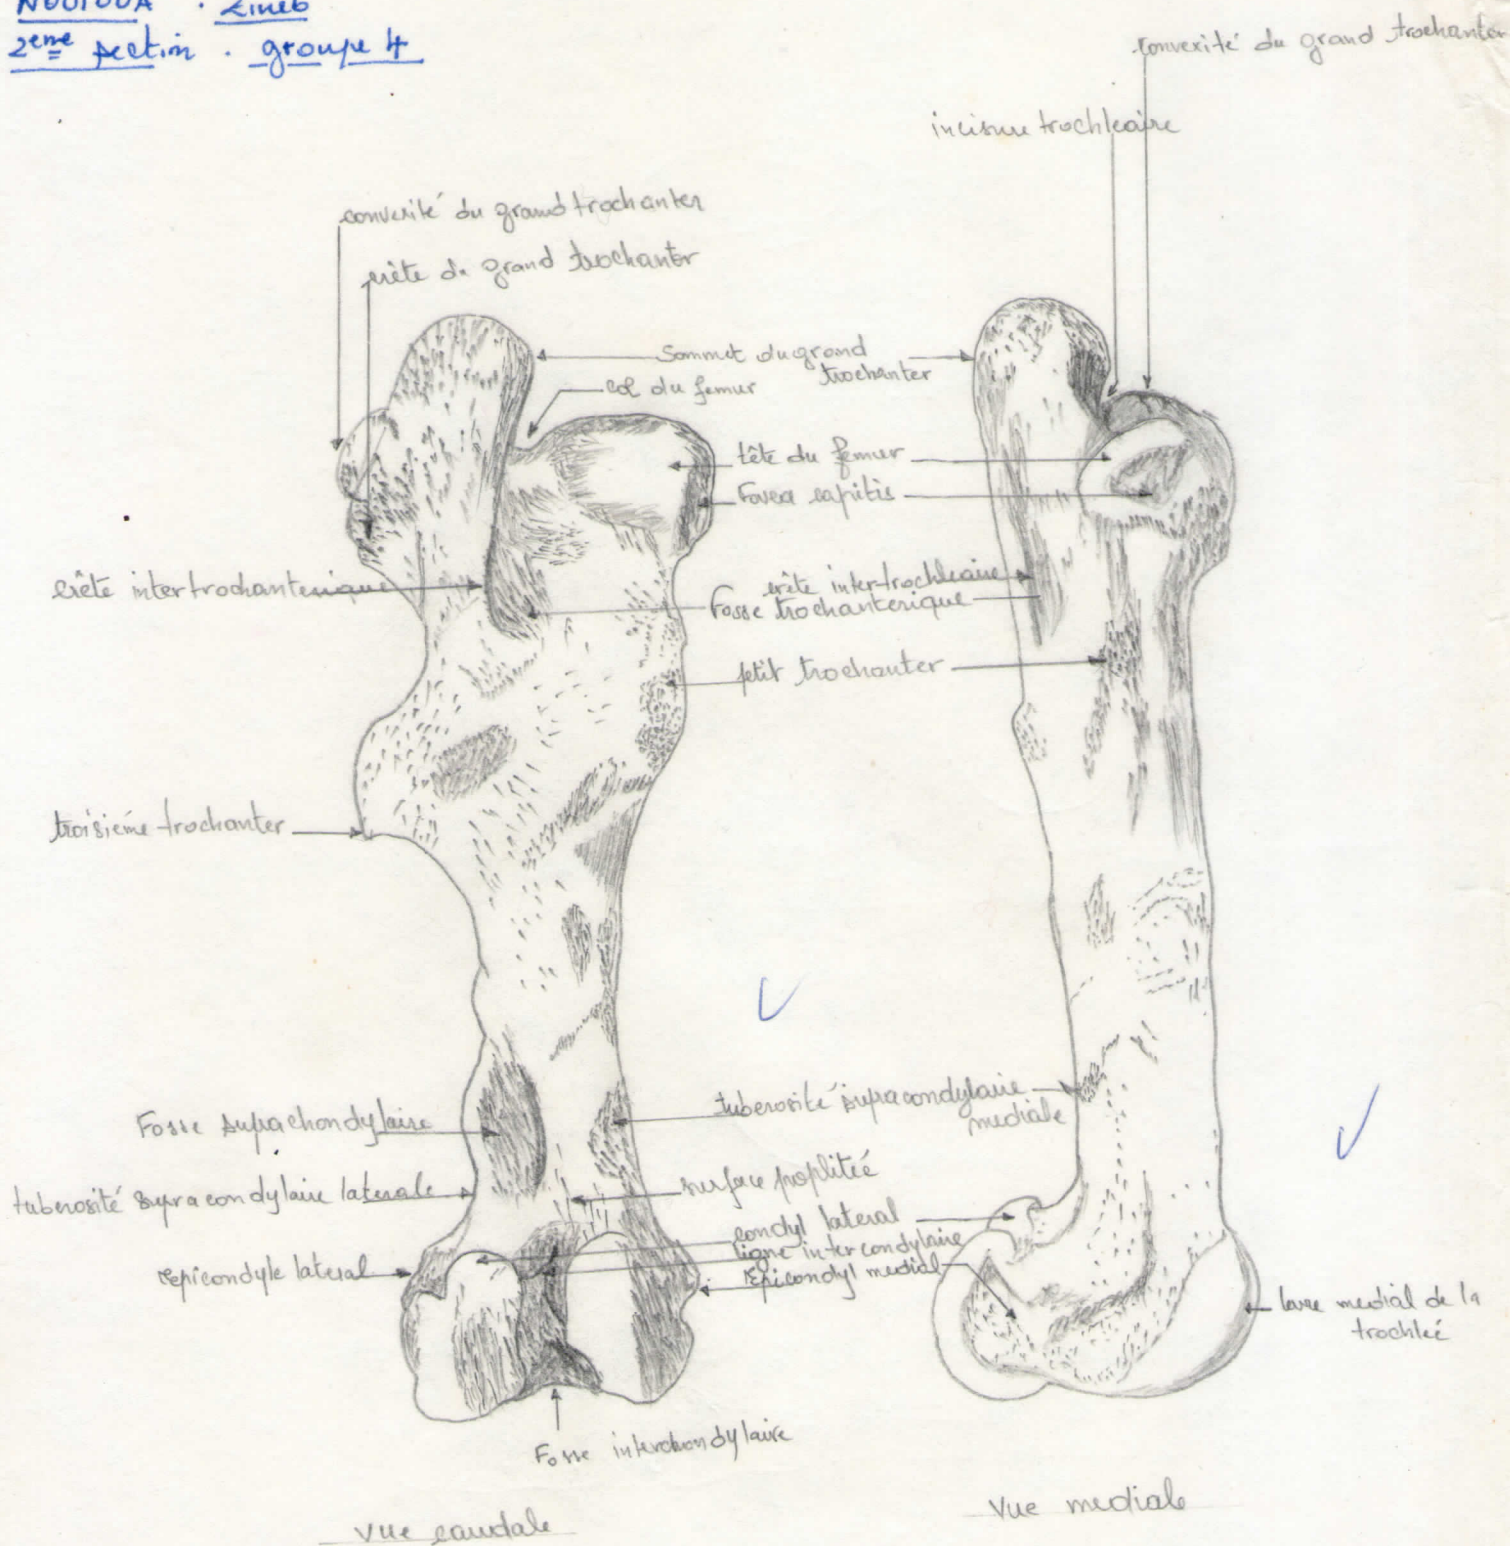 NOUIOUA . Zineb
2eme section . groupe 4
convexité du grand trochanter
incisure trochleaire
convexité du grand trochanter
crète du grand trochanter
Sommet du grand
trochanter
col du femur
tête du femur
Fovea capitis
Crête intertrochanterique
crête inter-trochleaire
Fosse trochanterique
petit trochanter
troisième trochanter
Fosse suprachondylaire
tuberosité supracondylaire
mediale
tuberosité supracondylaire laterale
surface poplitée
condyl lateral
ligne intercondylaire
Epicondyl medial
Epicondyle lateral
levre medial de la
trochleé
Fosse interchondylaire
Vue caudale
Vue mediale